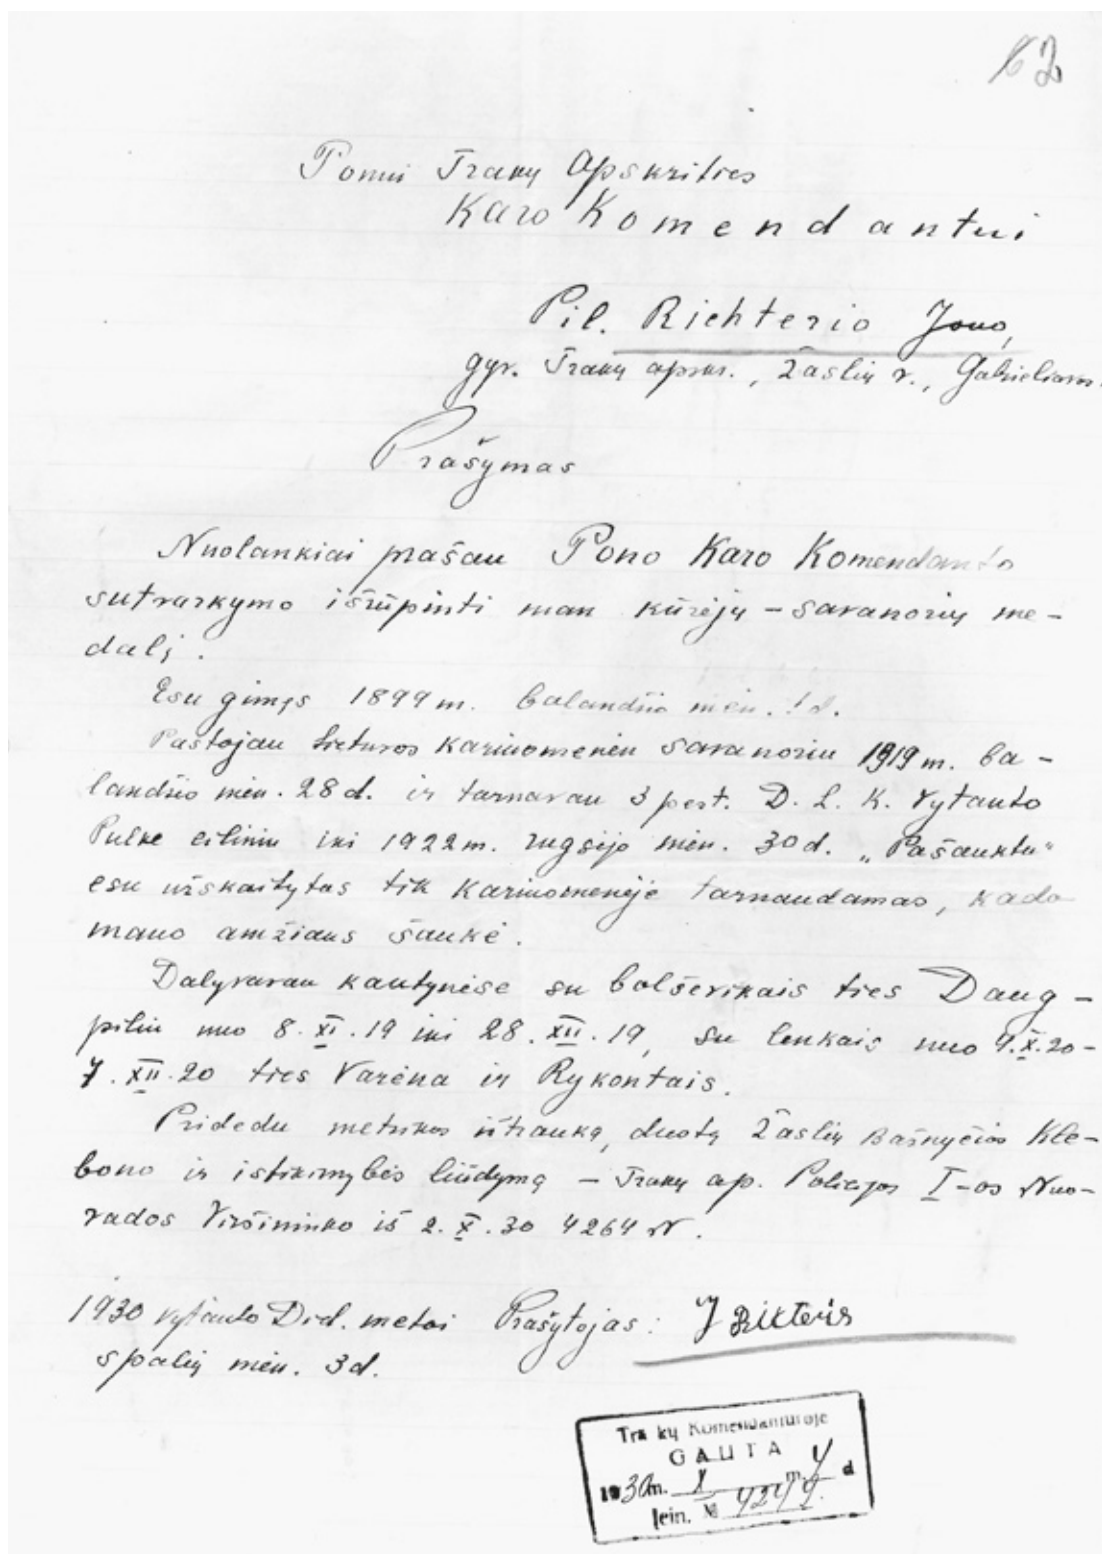 62
Ponui Trakų Apskrities
Karo Komendantui
Pil. Richterio Jono,
gyv. Trakų apskr., Žaslių v., Gabrieliavos
Prašymas
Nuolankiai prašau Pono Karo Komendanto
sutvarkymo išrūpinti man kūrėjų – savanorių me-
dalį.
Esu gimęs 1899 m. balandžio mėn. d.
Pastojau Lietuvos kariuomenėn savanoriu 1919 m. ba-
landžio mėn. 28 d. ir tarnavau 3 pėst. D. L. K. Vytauto
Pulke eiliniu iki 1922 m. rugsėjo mėn. 30 d. „Pašauktu"
esu užskaitytas tik kariuomenėje tarnaudamas, kada
mano amžiaus šaukė.
Dalyvavau kautynėse su bolševikais ties Daug-
piliu nuo 8.XI.19 iki 28.XII.19, su lenkais nuo 9.X.20-
7.XII.20 ties Varėna ir Rykontais.
Pridedu metrikos ištrauką, duotą Žaslių Bažnyčios Kle-
bono ir ištikimybės liūdymą – Trakų ap. Policijos I-os Nuo-
vados Viršininko iš 2.X.30 4264 N.
1930 Vytauto Did. metai Prašytojas: J Rikteris
spalių mėn. 3 d.
Trakų Komendantūroje
GAUTA
1930 m. X m. 4 d
Įein. №